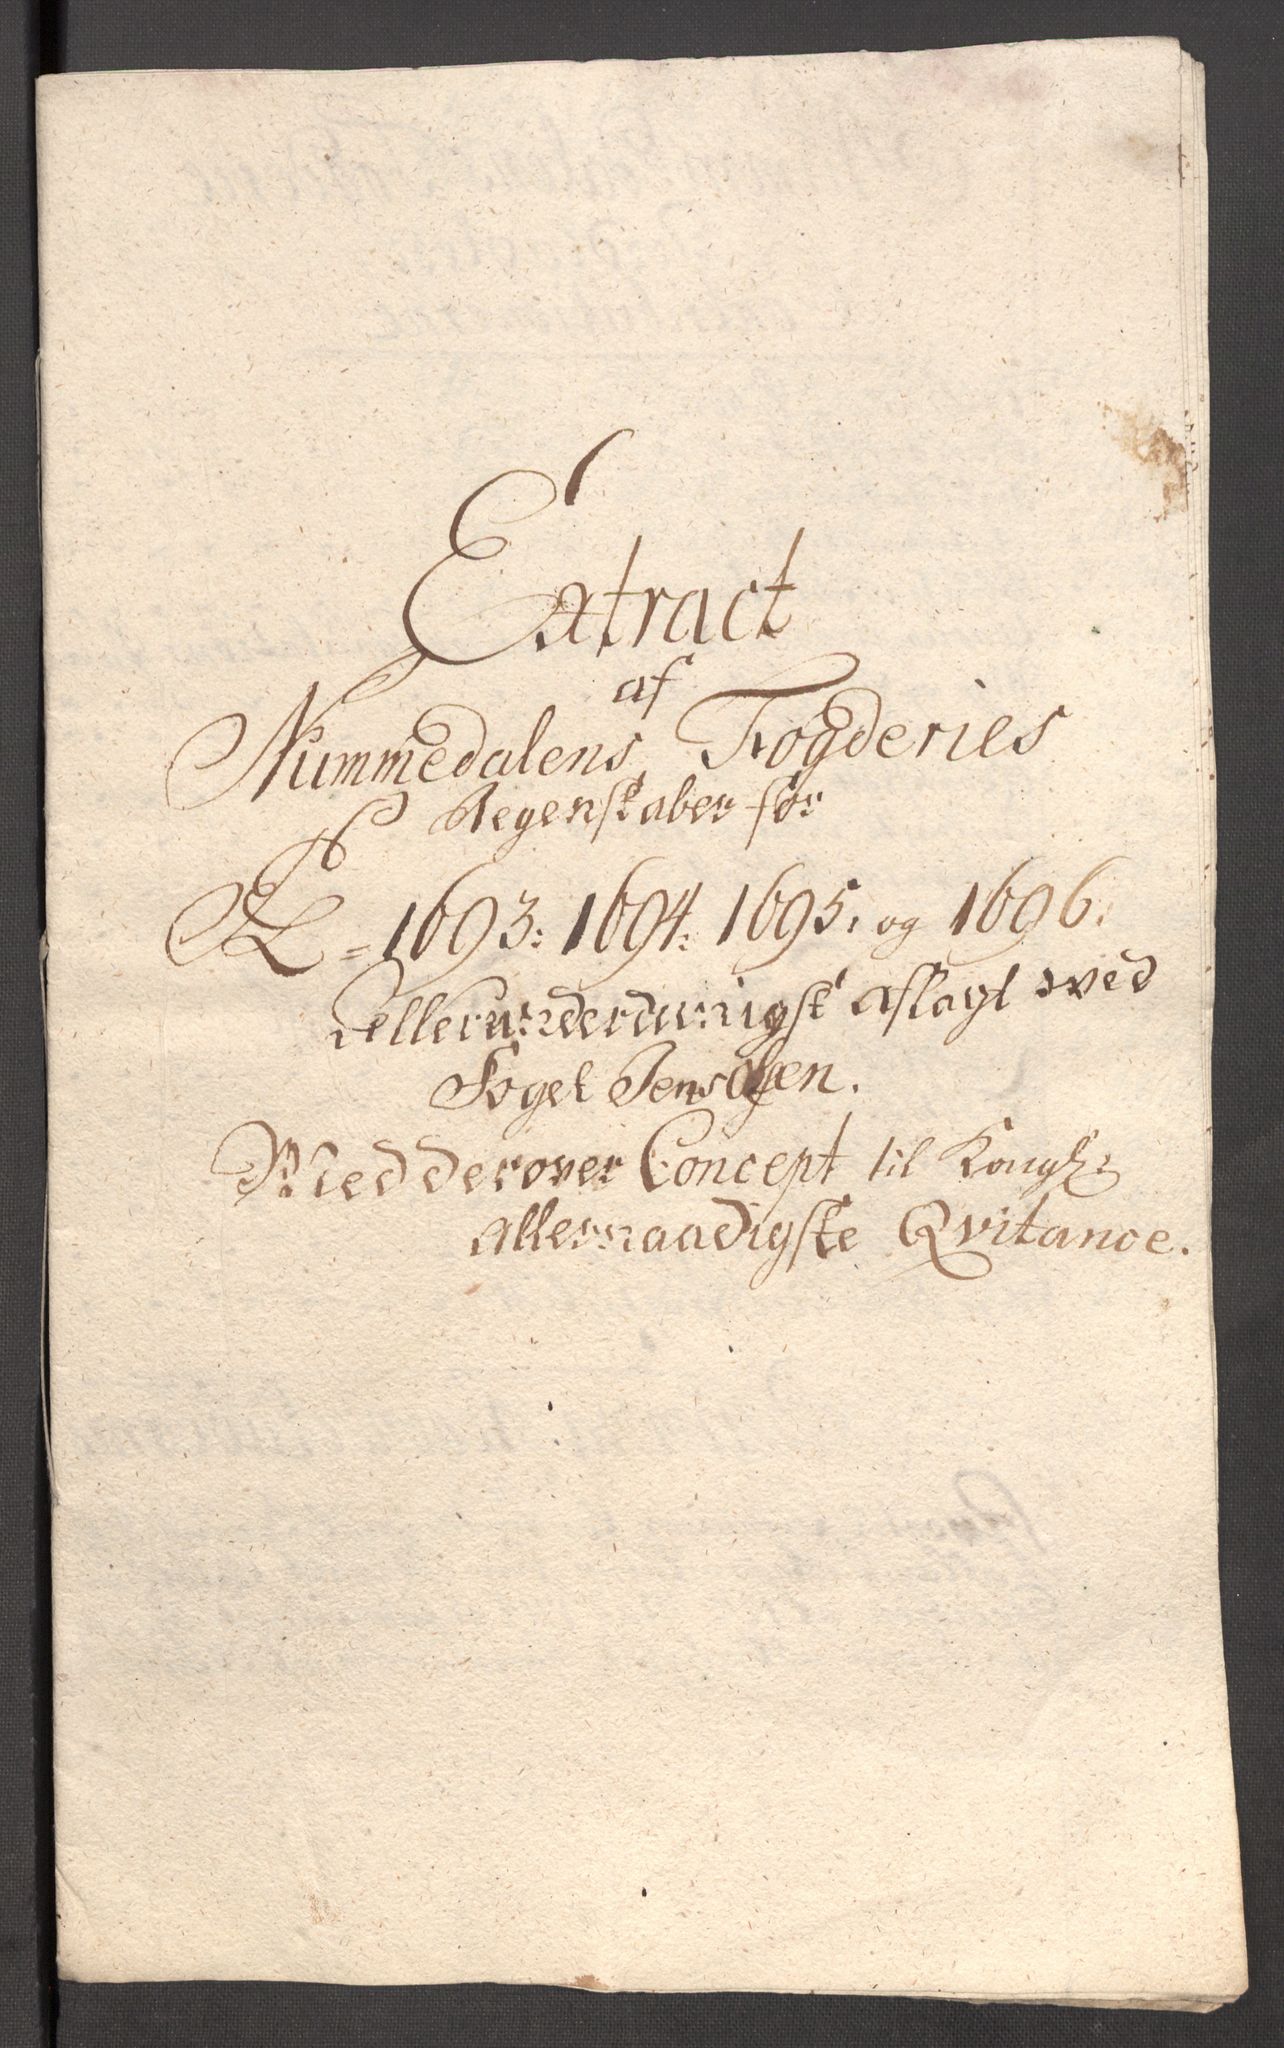 Extract
af
Nummedalens Fogderies
Regenskaber for
A͞o = 1693: 1694: 1695: og 1696.
allerunderdanigst aflagt ved
Foget Jens Olsen.
Med derover Concept til Kongl:
allernaadigste Qvitance.